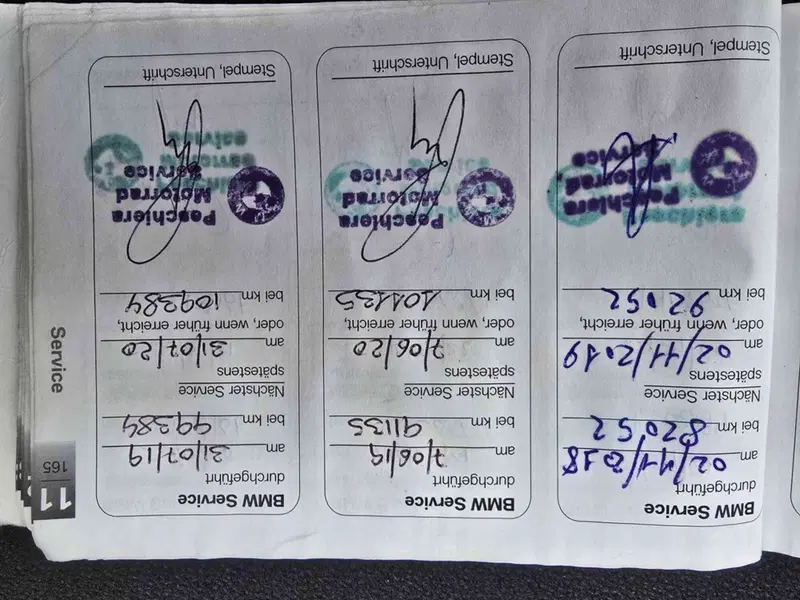 BMW Service
durchgeführt
am 02/11/2018
bei km 82052
Nächster Service
spätestens
am 02/11/2019
oder, wenn früher erreicht,
bei km 92052
Peschiera
Motorrad
Service
Stempel, Unterschrift
BMW Service
durchgeführt
am 7/06/19
bei km 91135
Nächster Service
spätestens
am 7/06/20
oder, wenn früher erreicht,
bei km 101135
Peschiera
Motorrad
Service
Stempel, Unterschrift
BMW Service
durchgeführt
am 31/07/19
bei km 99384
Nächster Service
spätestens
am 31/07/20
oder, wenn früher erreicht,
bei km 109384
Peschiera
Motorrad
Service
Stempel, Unterschrift
11
165
Service